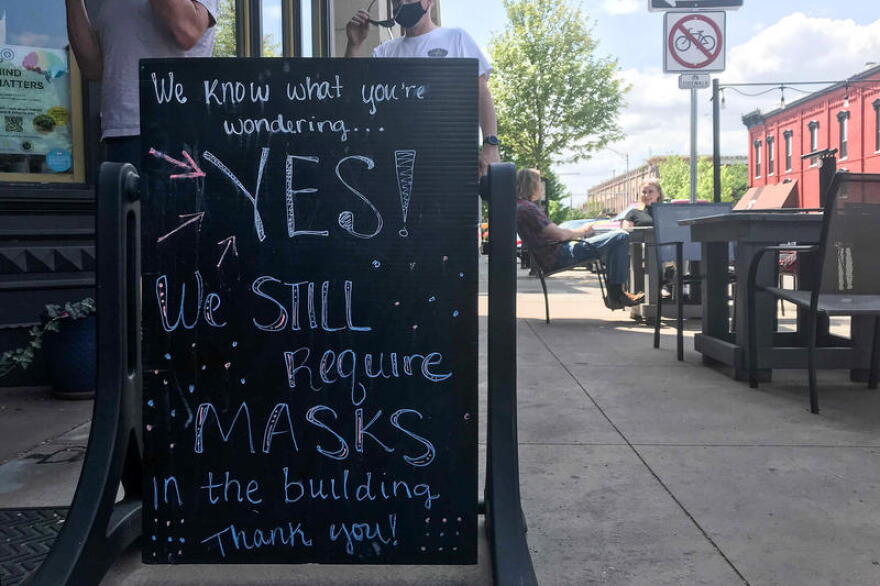 We know what you're
wondering...
YES!
We STILL
Require
MASKS
In the building
Thank you!
MIND
MATTERS
SIDEWALK